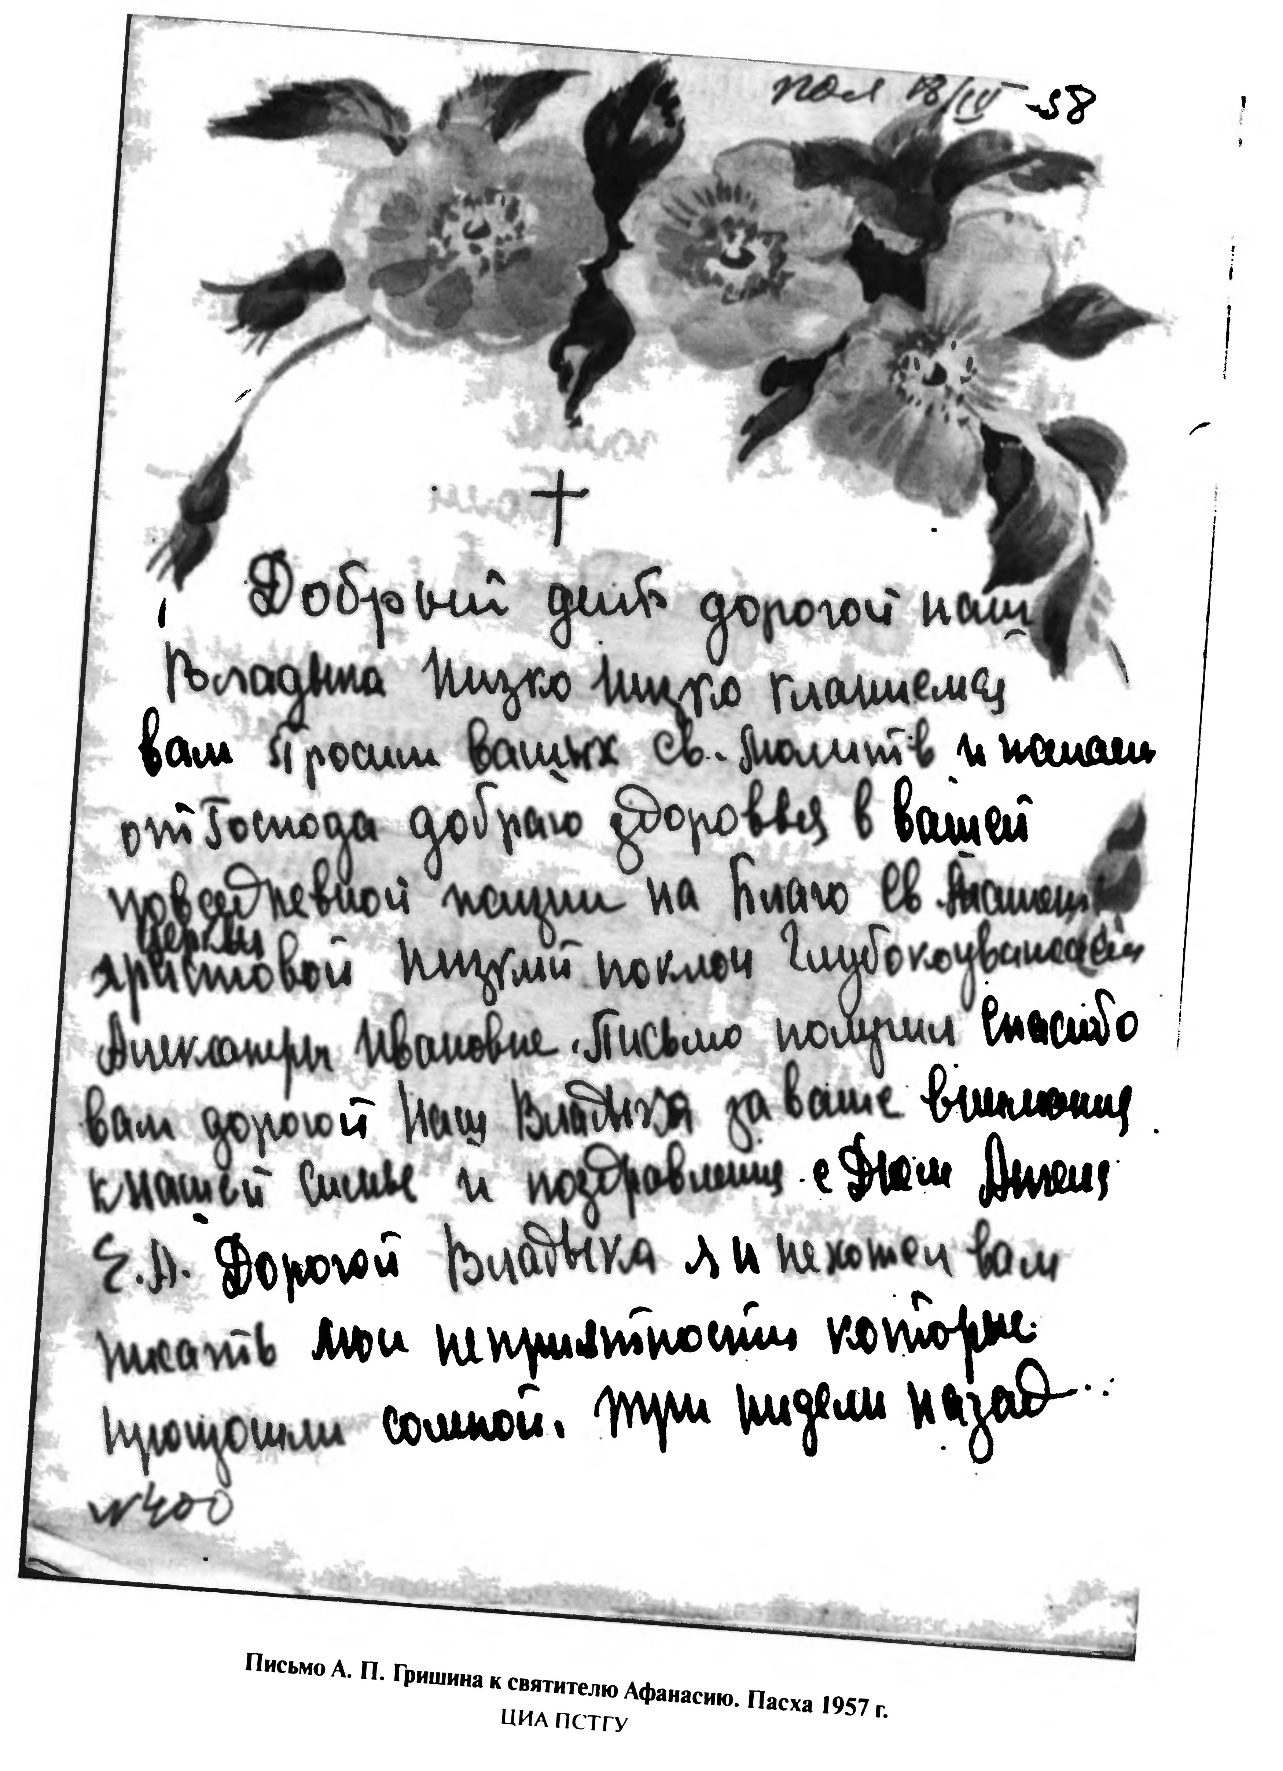 пол 18/IV-58
Добрый день дорогой наш
Владыка низко низко кланиемся
вам Просим ваших Св. Молитв и желаем
от Господа добраго здоровья в вашей
повседневной жизни на Благо Св. Нашей
церкви
христовой низкий поклон Глубокоуважаемой
Александры Ивановне. Письмо получил Спасибо
вам дорогой Наш Владыка за ваше внимание
к нашей симье и поздравление с Днем Ангела
Е.А. Дорогой Владыка я и не хотел вам
писать мои неприятности которые
произошли сомной. три нидели назад
N400
Письмо А. П. Гришина к святителю Афанасию. Пасха 1957 г.
ЦИА ПСТГУ